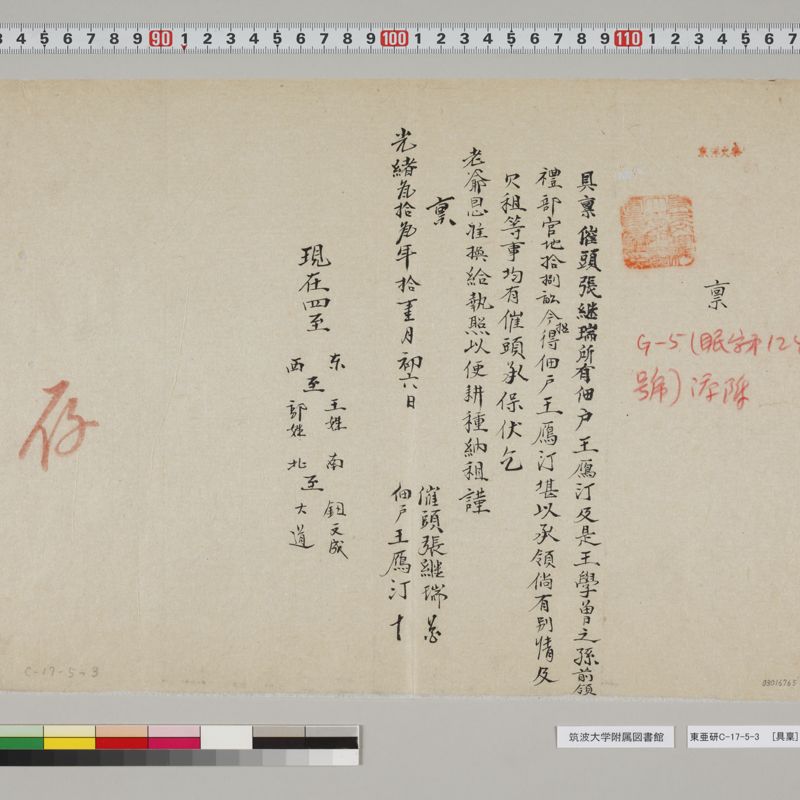 稟
具稟催頭張継瑞所有佃户王鴈汀及是王學曽之孫前領
禮部官地拾捌畝今据得佃户王鴈汀堪以承領倘有别情及
欠租等事均有催頭承保伏乞
老爺恩准換給執照以便耕種納租謹
稟
光緒拾年拾月初六日
催頭張継瑞
佃户王鴈汀十
現在四至
东至王姓
南至文成
西至郭姓
北至大道
存
G-5(眠字第12
號)
C-17-5-3
03016765
筑波大学附属図書館
東亜研C-17-5-3 [具稟]
3 4 5 6 7 8 9 90 1 2 3 4 5 6 7 8 9 100 1 2 3 4 5 6 7 8 9 110 1 2 3 4 5 6 7